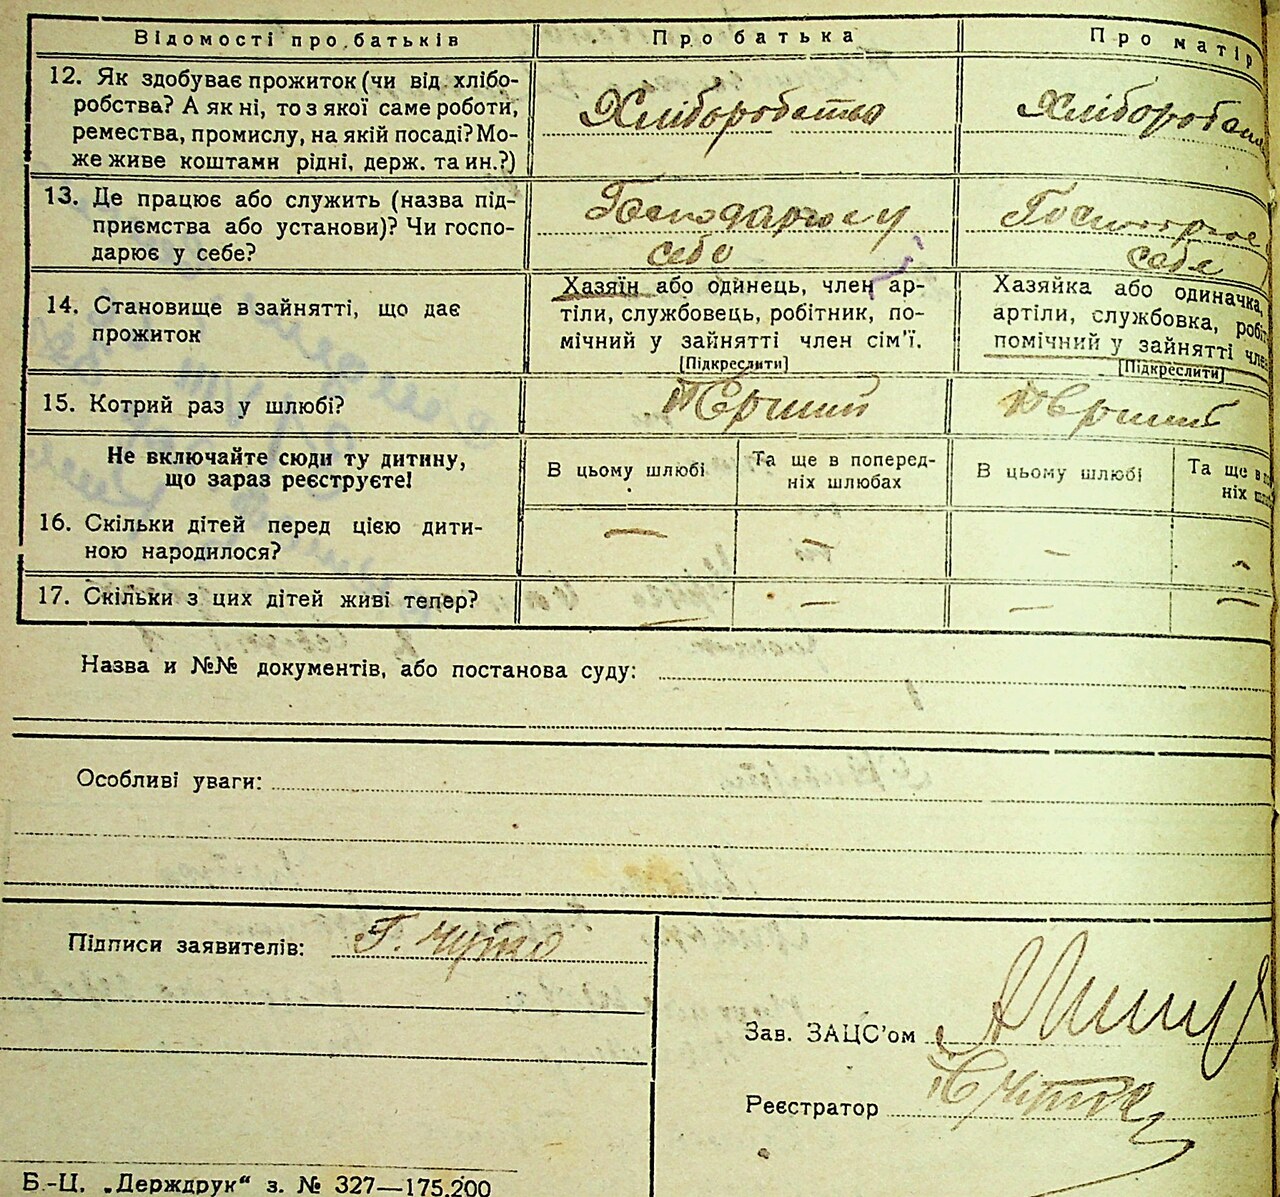 Відомості про батьків
Про батька
Про матір
12. Як здобуває прожиток (чи від хлібо-
робства? А як ні, то з якої саме роботи,
ремества, промислу, на якій посаді? Мо-
же живе коштами рідні, держ. та ин.?)
Хліборобство
Хліборобс
13. Де працює або служить (назва під-
приємства або установи)? Чи госпо-
дарює у себе?
Господарює у
себе
себе
14. Становище в зайнятті, що дає
прожиток
Хазяїн або одинець, член ар-
тіли, службовець, робітник, по-
мічний у зайнятті член сім'ї.
[Підкреслити]
Хазяйка або одиначка,
артіли, службовка, робіт
помічний у зайнятті член
[Підкреслити]
15. Котрий раз у шлюбі?
Перший
Перший
Не включайте сюди ту дитину,
що зараз реєструєте!
В цьому шлюбі
Та ще в поперед-
ніх шлюбах
В цьому шлюбі
Та ще в по
ніх шл
16. Скільки дітей перед цією дити-
ною народилося?
— — — -
17. Скільки з цих дітей живі тепер?
— — — —
Назва и №№ документів, або постанова суду:
Особливі уваги:
Підписи заявителів: Г. Чутко
Зав. ЗАЦС'ом
Реєстратор
Б.-Ц. „Держдрук“ з. № 327—175.200